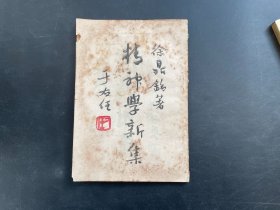 徐鼎銘著
精神學新集
于右任